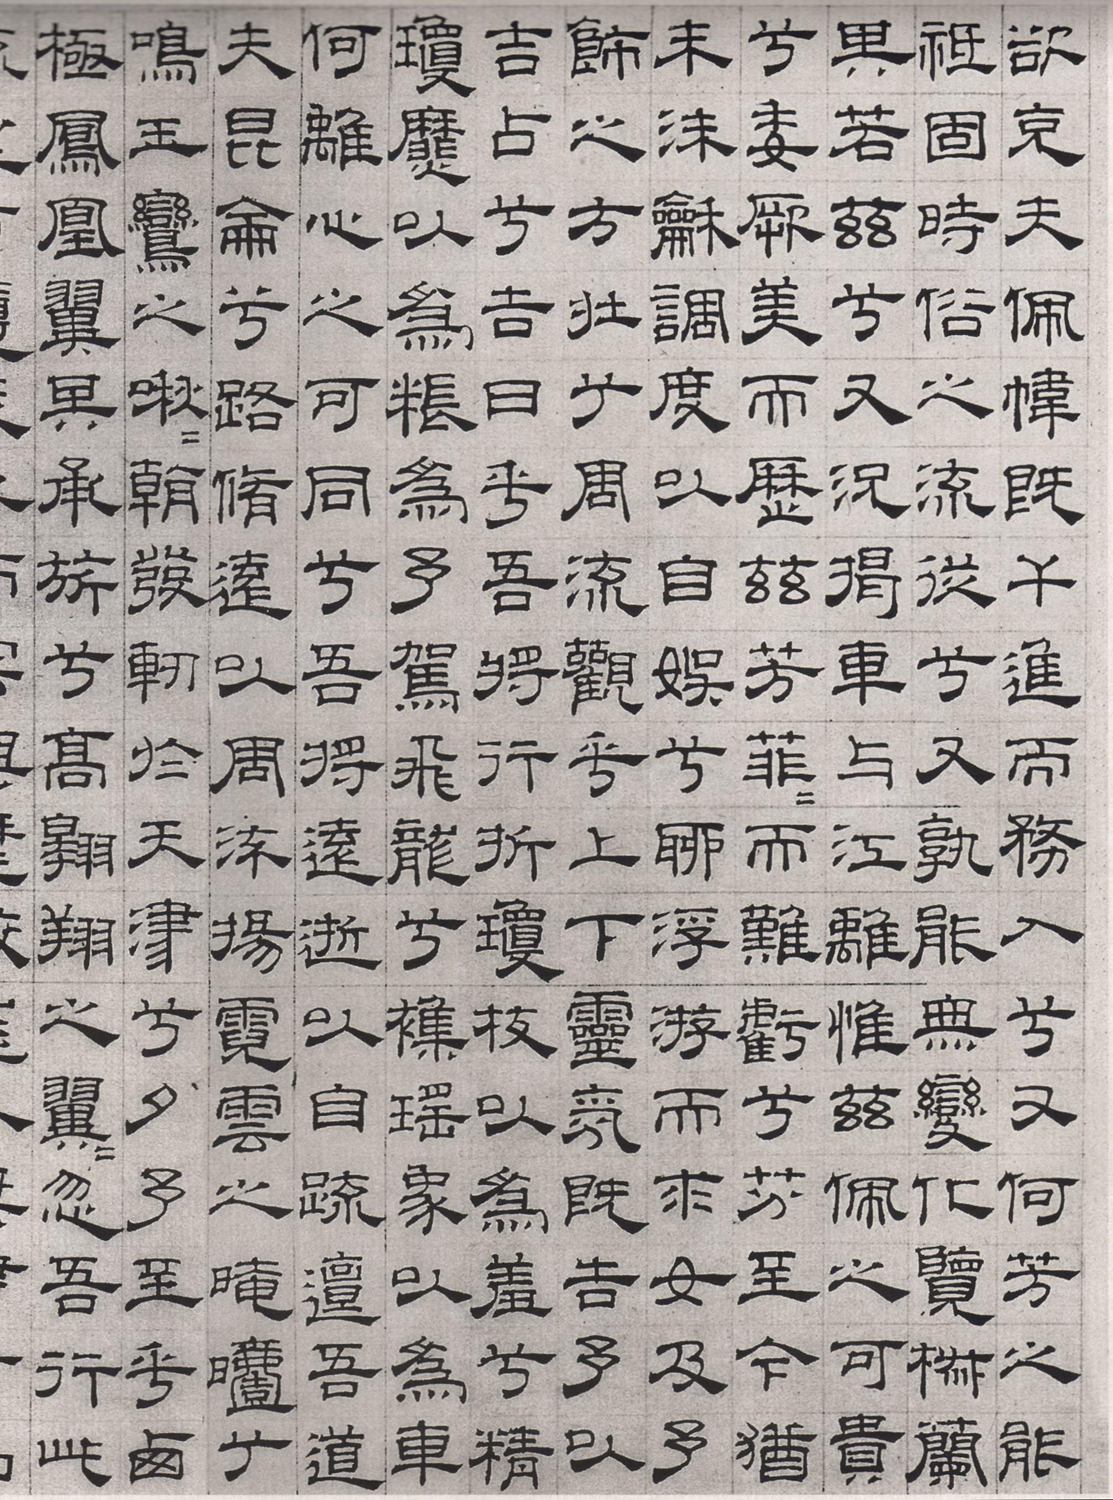 欲充夫佩幃既干進而務入兮又何芳之能
祗固時俗之流從兮又孰能無變化覽椒蘭
其若茲兮又況揭車与江離惟茲佩之可貴
兮委厥美而歷茲芳菲〻而難虧兮芬至今猶
未沬龢調度以自娛兮聊浮游而求女及予
飾之方壯兮周流觀乎上下靈氛既告予以
吉占兮吉日乎吾將行折瓊枝以為羞兮精
瓊爢以為粻為予駕飛龍兮襍瑤象以為車
何離心之可同兮吾將遠逝以自疏邅吾道
夫昆侖兮路脩遠以周流揚霓雲之晻曖兮
鳴玉鸞之啾〻朝發軔於天津兮夕予至乎西
極鳳凰翼其承旂兮高翱翔之翼〻忽吾行此